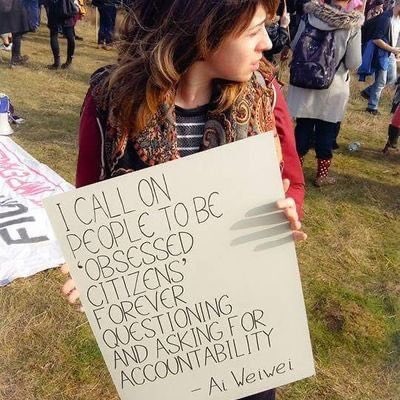 I CALL ON
PEOPLE TO BE
'OBSESSED
CITIZENS'
FOREVER
QUESTIONING
AND ASKING FOR
ACCOUNTABILITY
- Ai Weiwei